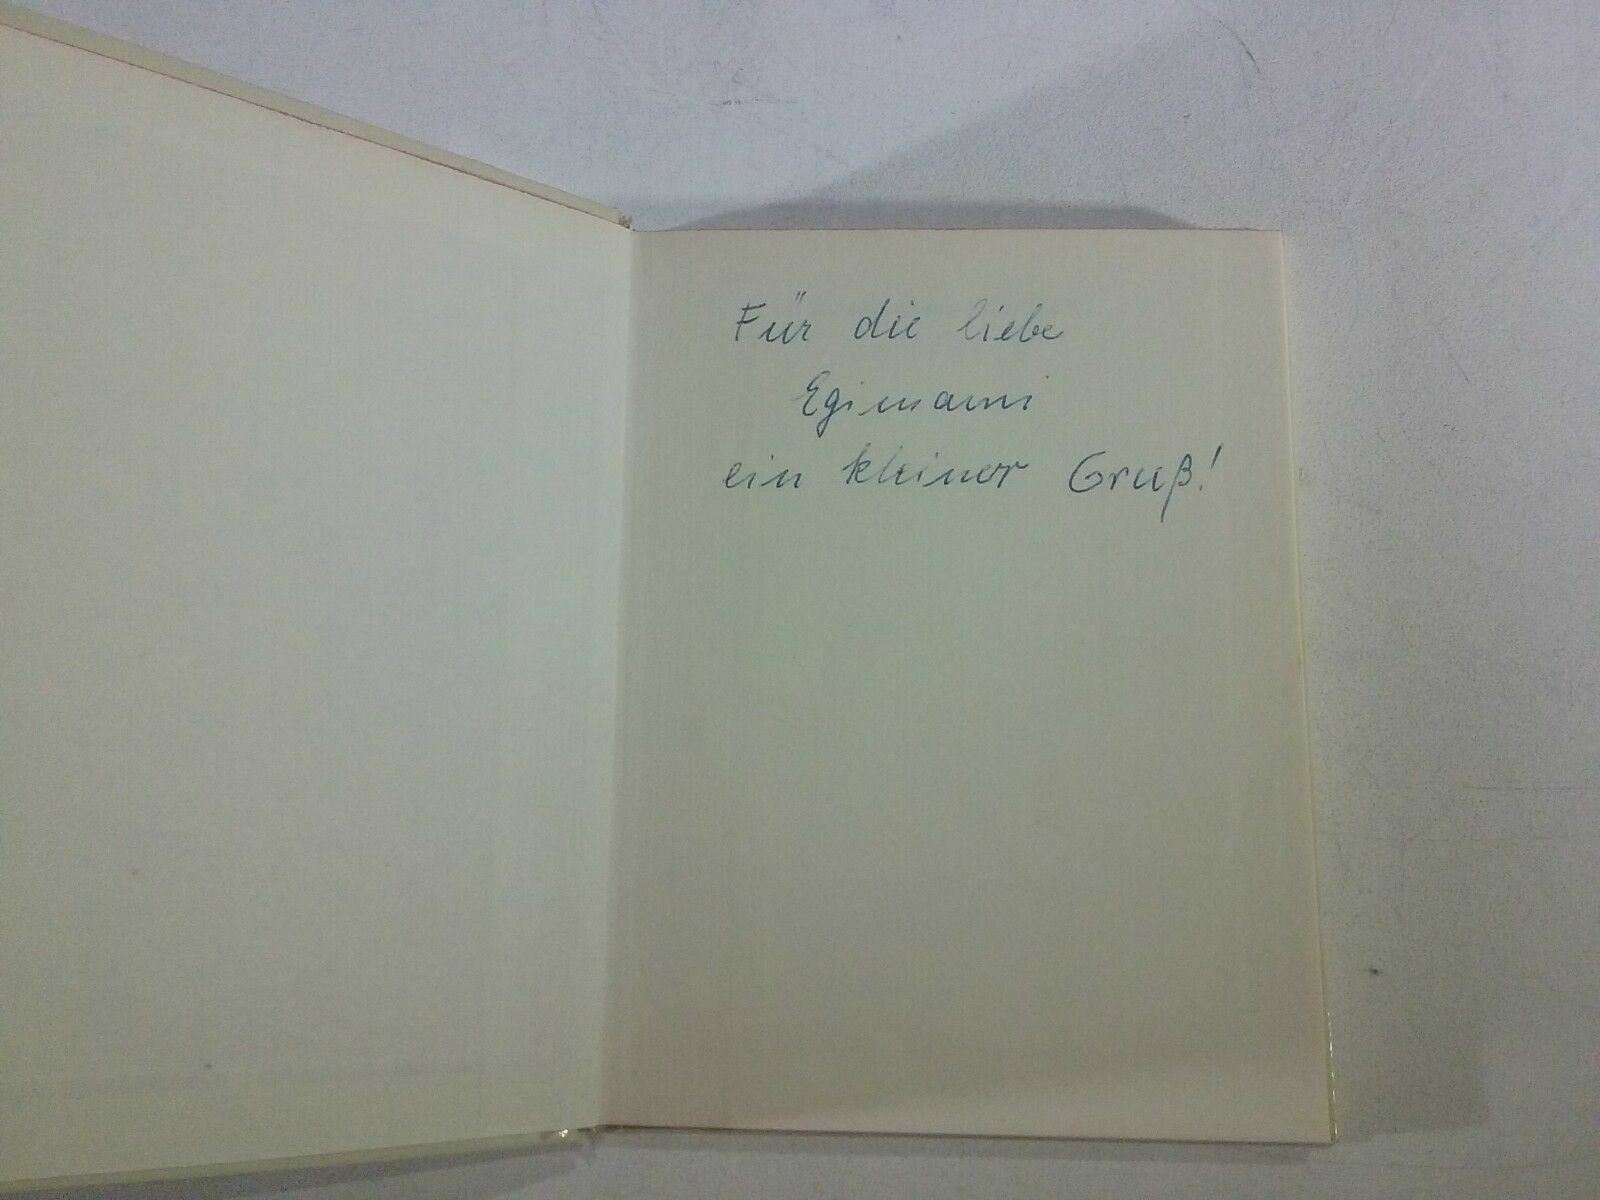 Für die liebe
Egimami
ein kleiner Gruß!